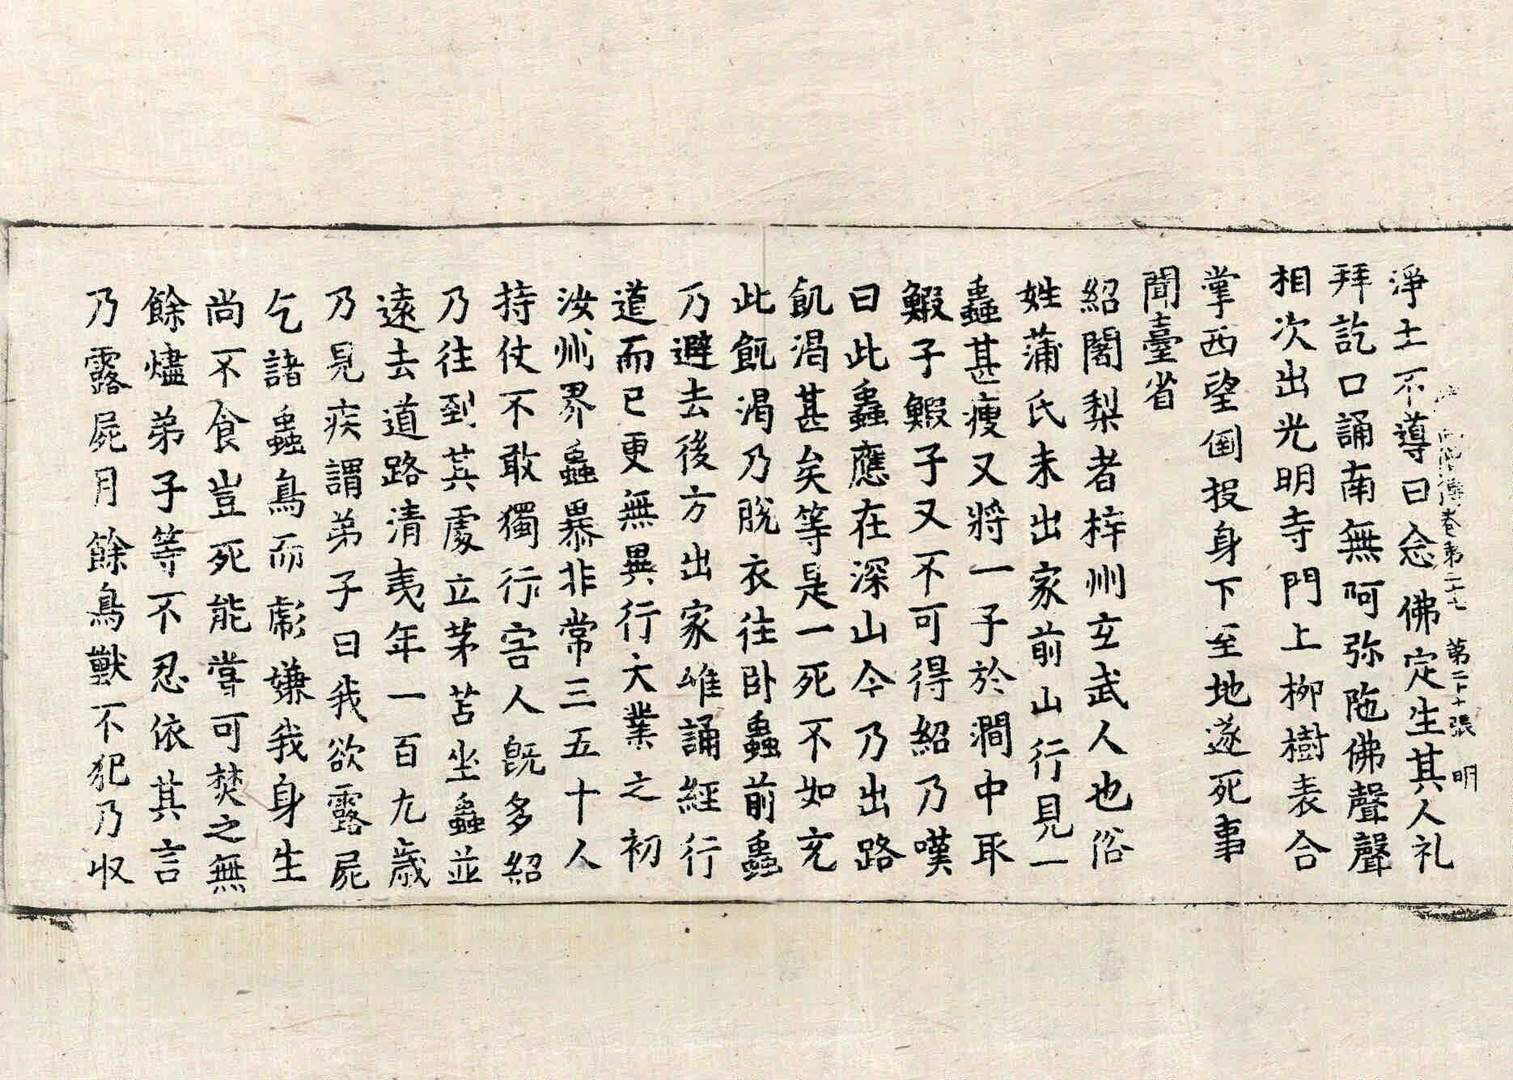 淨土不導曰念佛定生其人礼
傳卷第二十七 第二十張 明
拜訖口誦南無阿弥陁佛聲聲
相次出光明寺門上柳樹表合
掌西望倒投身下至地遂死事
聞臺省
紹闍梨者梓州玄武人也俗
姓蒲氏未出家前山行見一
蟲甚瘦又將一子於澗中取
鰕子鰕子又不可得紹乃嘆
曰此蟲應在深山今乃出路
飢渴甚矣等是一死不如充
此飢渴乃脫衣往卧蟲前蟲
乃避去後方出家唯誦經行
道而已更無異行大業之初
汝州界蟲暴非常三五十人
持仗不敢獨行害人旣多紹
乃往到其處立茅苫坐蟲並
遠去道路清夷年一百九歲
乃見疾謂弟子曰我欲露屍
乞諸蟲鳥而彪嫌我身生
尚不食豈死能嘗可焚之無
餘燼弟子等不忍依其言
乃露屍月餘鳥獸不犯乃収